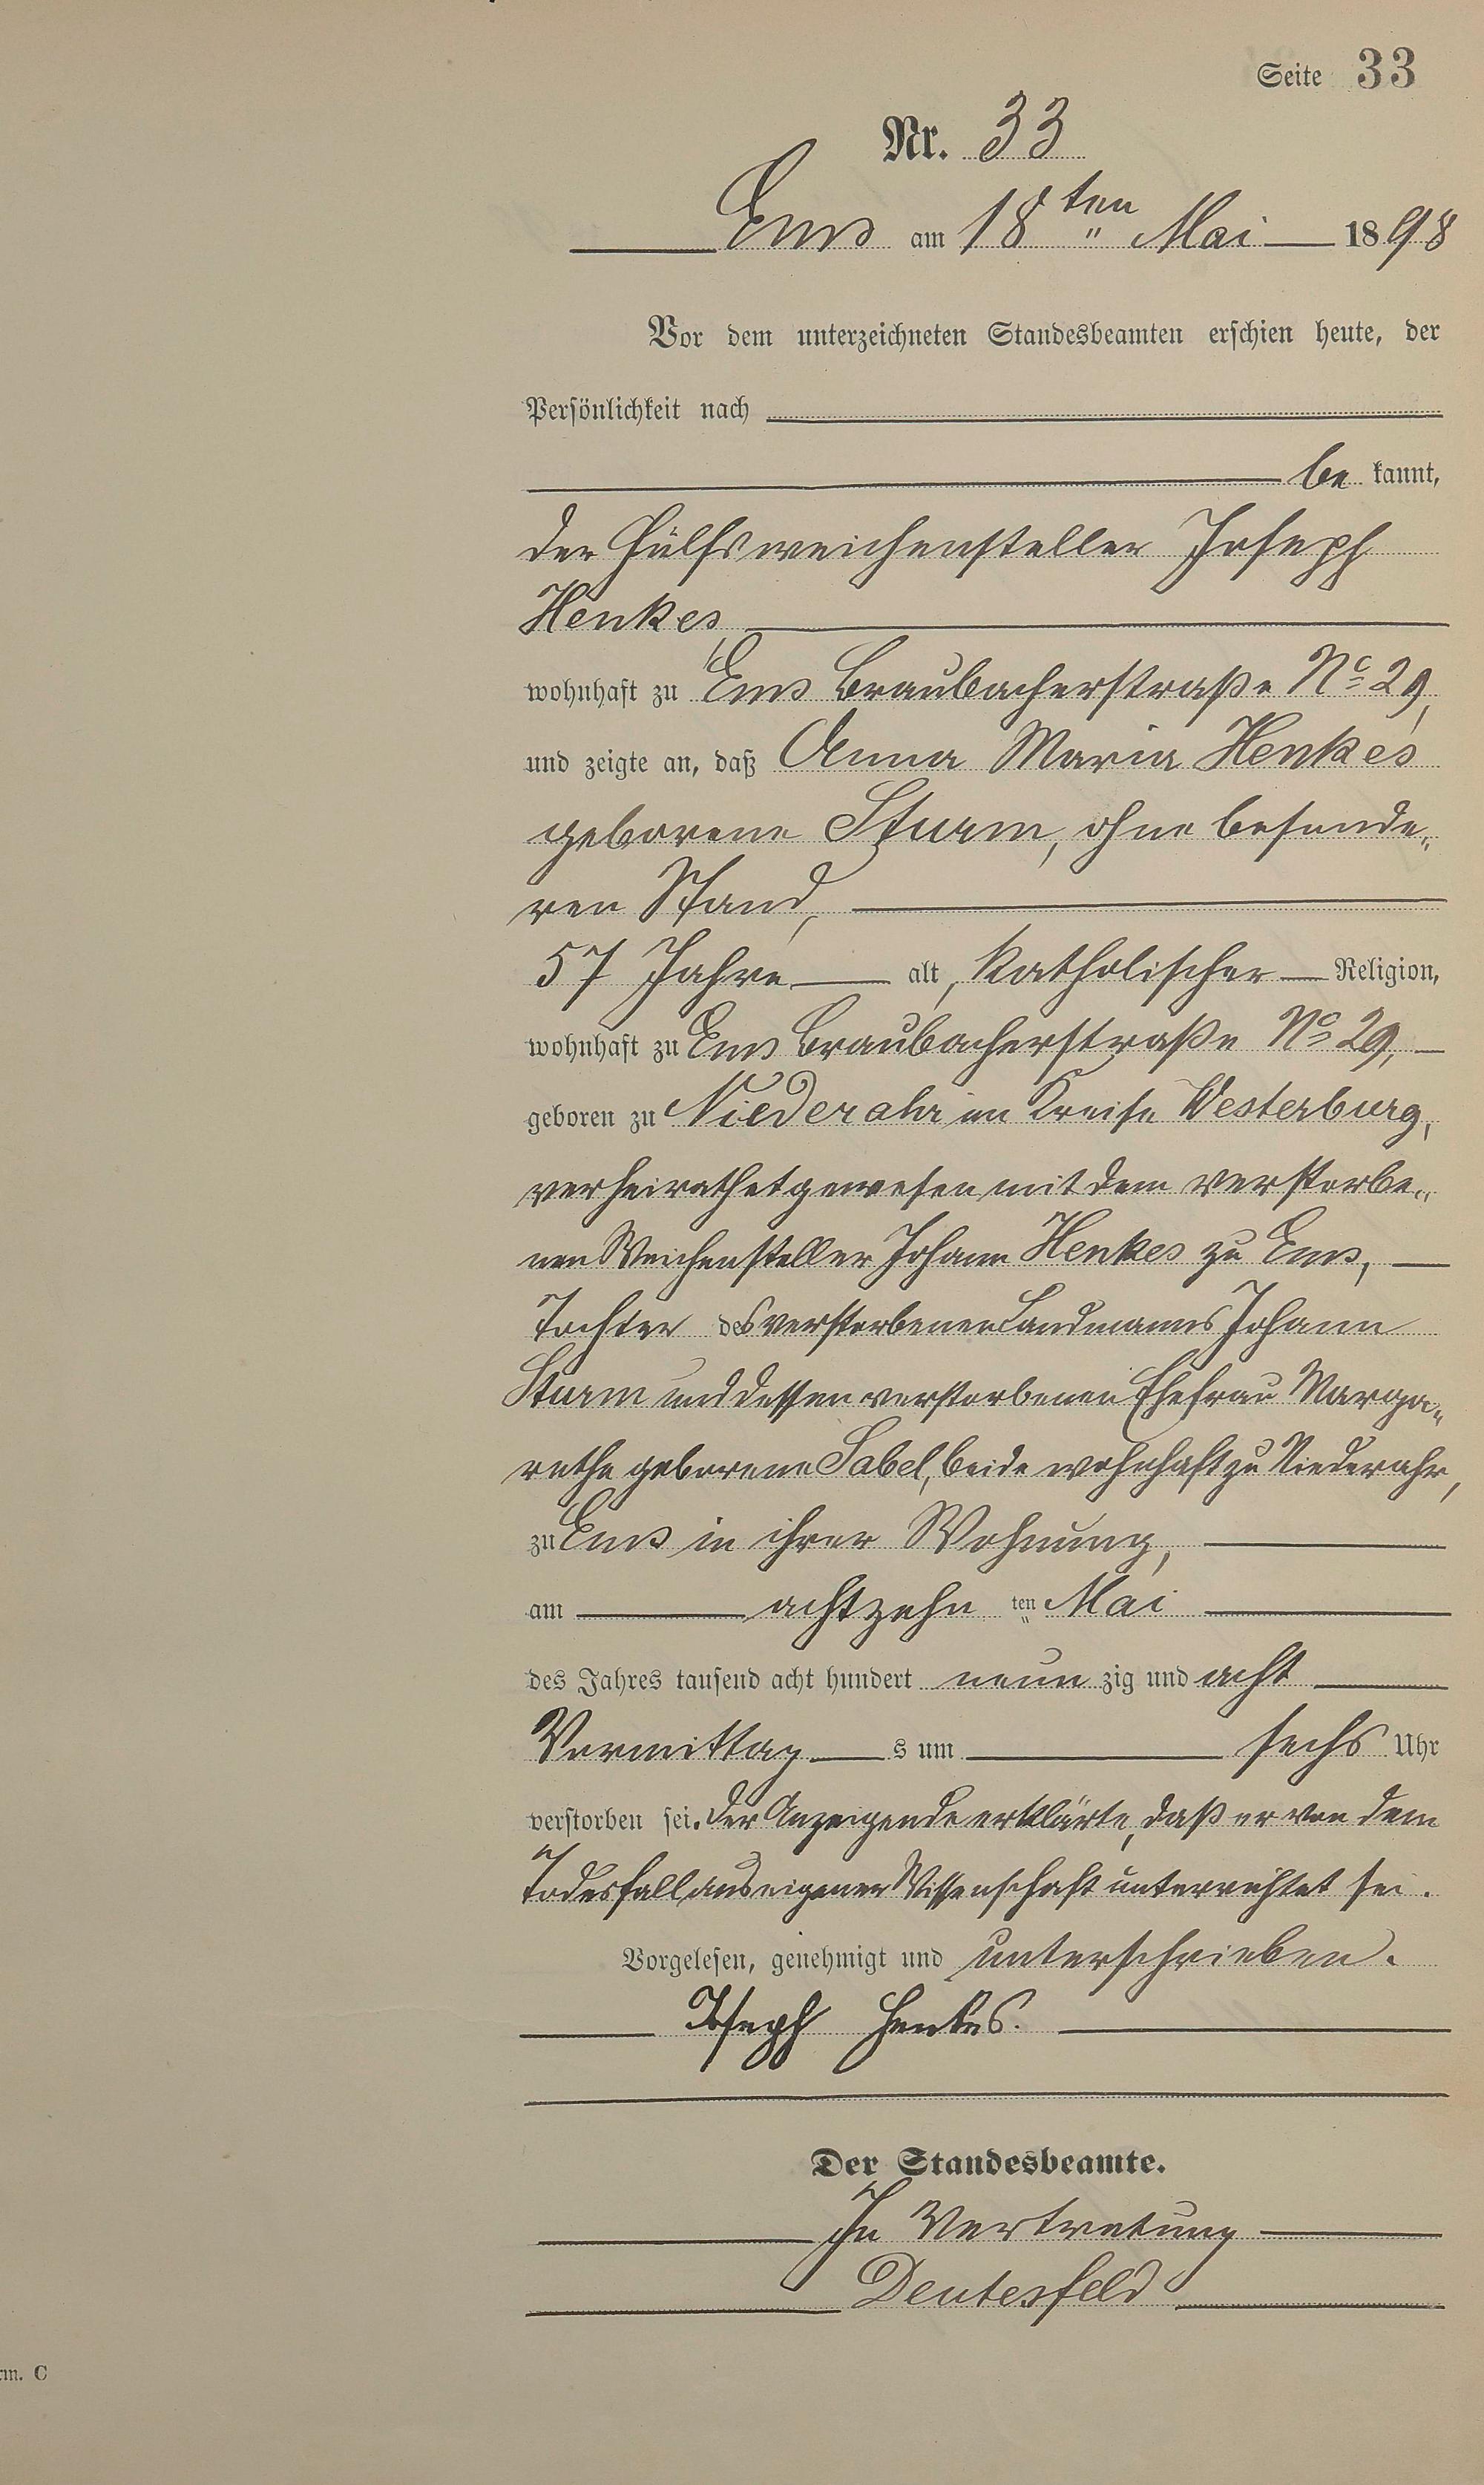 Seite 33
Nr. 33
Ems am 18ten " Mai 1898
Vor dem unterzeichneten Standesbeamten erschien heute, der
Persönlichkeit nach
be kannt,
der Hülfsweichensteller Joseph
Henkes,
wohnhaft zu Ems Braubacherstraße No 29,
und zeigte an, daß Anna Maria Henkes
geborene Sturm, ohne besonde„
ren Stand,
57 Jahre alt, katholischer Religion,
wohnhaft zu Ems Braubacherstraße No 29,
geboren zu Niederahr im Kreise Westerburg,
verheirathet gewesen mit dem verstorbe„
nen Weichensteller Johann Henkes zu Ems,
Tochter des verstorbenen Landmanns Johann
Sturm und dessen verstorbenen Ehefrau Marga„
rethe geborene Sabel, beide wohnhaft zu Niederahr,
zu Ems in ihrer Wohnung,
am achtzehn ten Mai
des Jahres tausend acht hundert neun zig und acht
Vormittag s um sechs Uhr
verstorben sei. Der Anzeigende erklärte, daß er von dem
Todesfall aus eigener Wissenschaft unterrichtet sei.
Vorgelesen, genehmigt und unterschrieben.
Joseph Henkes.
Der Standesbeamte.
In Vertretung
Deutesfeld
rm. C